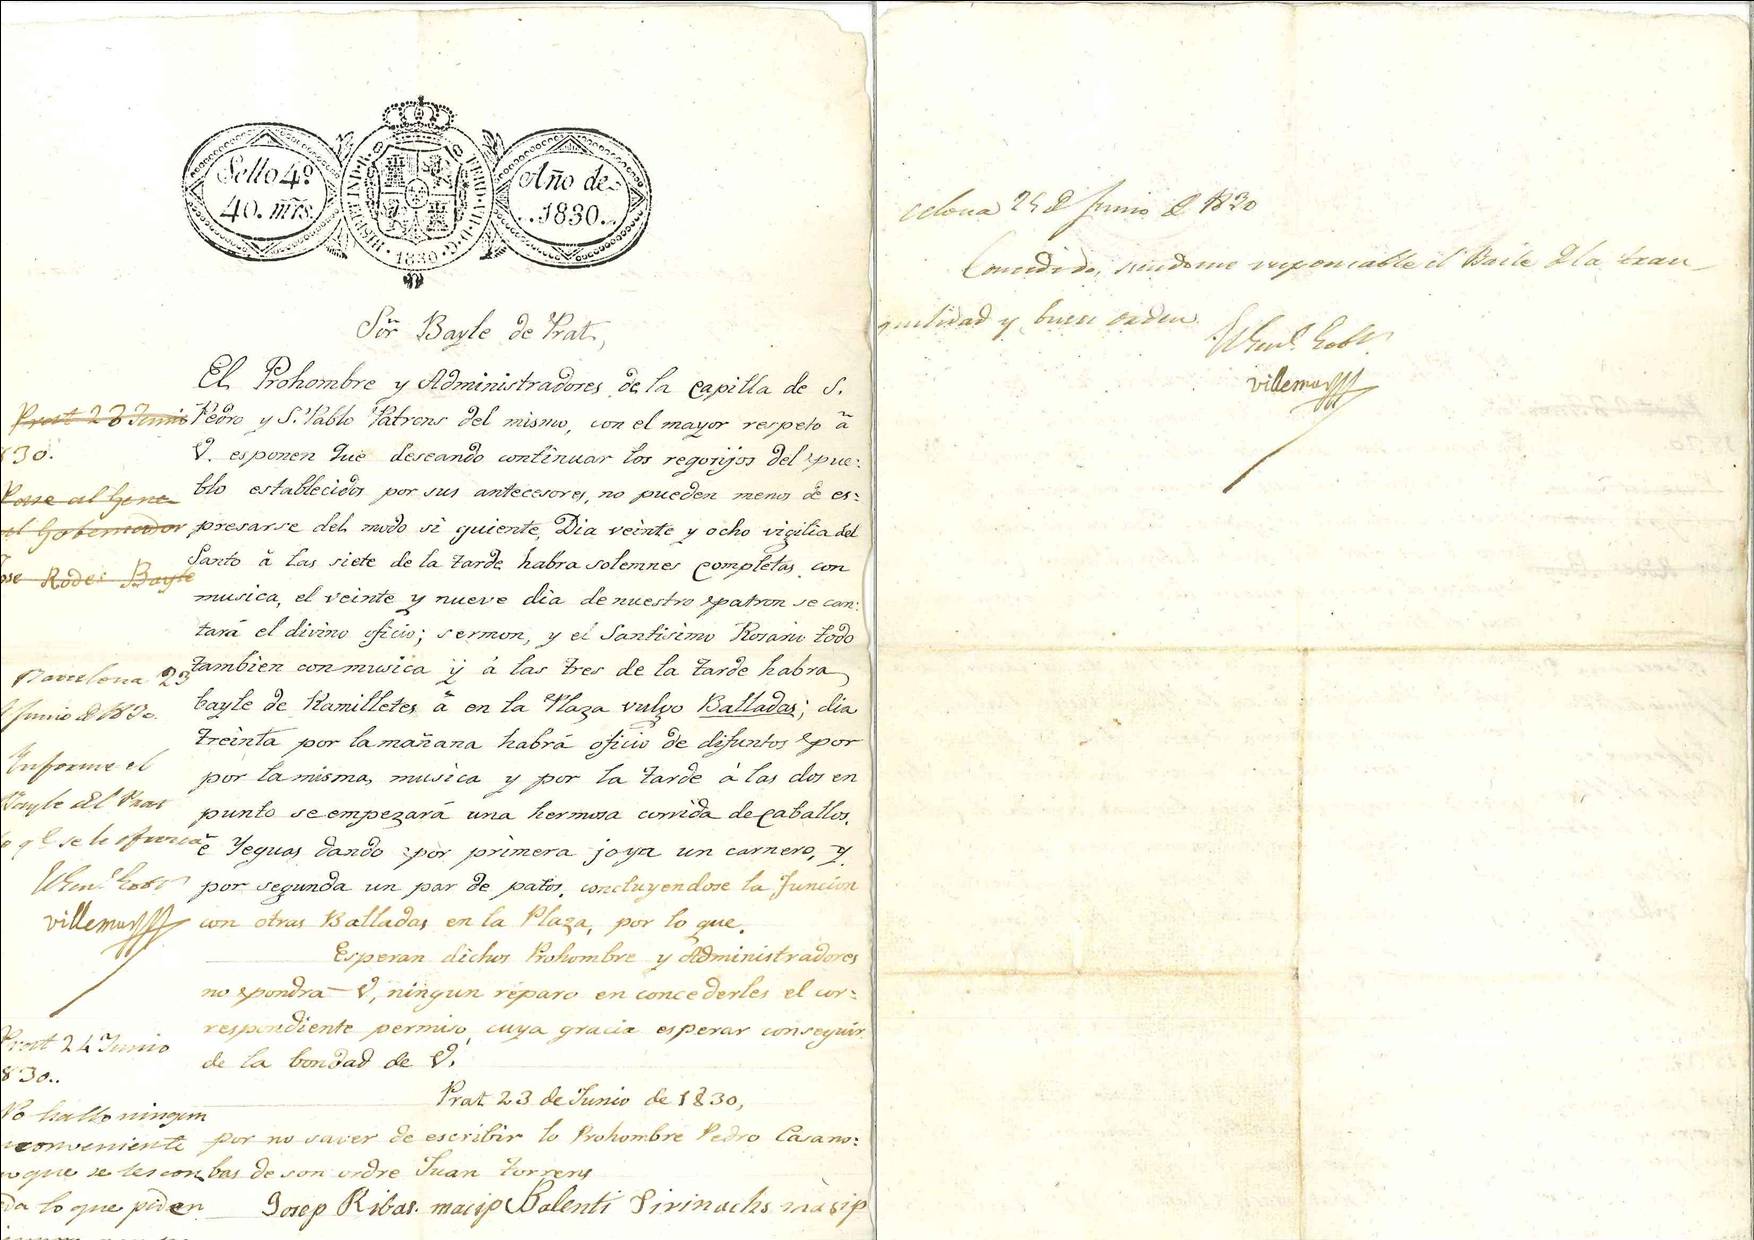 Sello 4º
40. mrs.
HISP. ET IND. R.
FERD. VII. D. G.
1830
Año de
1830.
Sor Bayle de Prat,
El Prohombre y Administradores de la capilla de S.
Pedro y S. Pablo Patrons del mismo, con el mayor respeto ã
V. esponen que deseando continuar los regosijos del pue:
blo establecidos por sus antecesores, no pueden menos de es:
presarse del modo si guiente, Dia veinte y ocho vigilia del
Santo ã las siete de la tarde habra solemnes completas con
musica, el veinte y nueve dia de nuestro patron se can:
tará el divino oficio; sermon, y el Santisimo Rosario todo
tambien con musica ÿ á las tres de la tarde habra
bayle de Ramilletes ã en la Plaza vulgo Balladas; dia
treinta por la mañana habrá oficio de difuntos por
por la misma musica y por la tarde á las dos en
punto se empezará una hermosa corrida de caballos,
ẽ Yeguas dando por primera joya un carnero, y
por segunda un par de patos, concluyendose la funcion
con otras Balladas en la Plaza, por lo que.
Esperan dichos Prohombre y Administradores
no pondra V, ningun reparo en concederles el cor:
respondiente permiso, cuya gracia esperar conseguir
de la bondad de V.
Prat 23 de Junio de 1830,
por no saver de escribir lo Prohombre Pedro Casano:
bas de son ordre Juan Torrens
Josep Ribas masip Balenti Sirinachs màsip
Prat 23 Junio
830.
Pase al Gene
al Gobernador
Jose Rodes Bayle
Barcelona 23
Junio de 1830.
Informe el
Bayle del Prat
lo q.e se le ofrezca
El Gen.l Gob.r
villemur
Prat 24 Junio
830..
No hallo ningun
inconveniente
que se les con
da lo que piden
celona 25 de Junio de 1830
Concedido, siendome responsable el Baile de la tran
quilidad y buen orden.
El Gen.l Gob.r
villemur